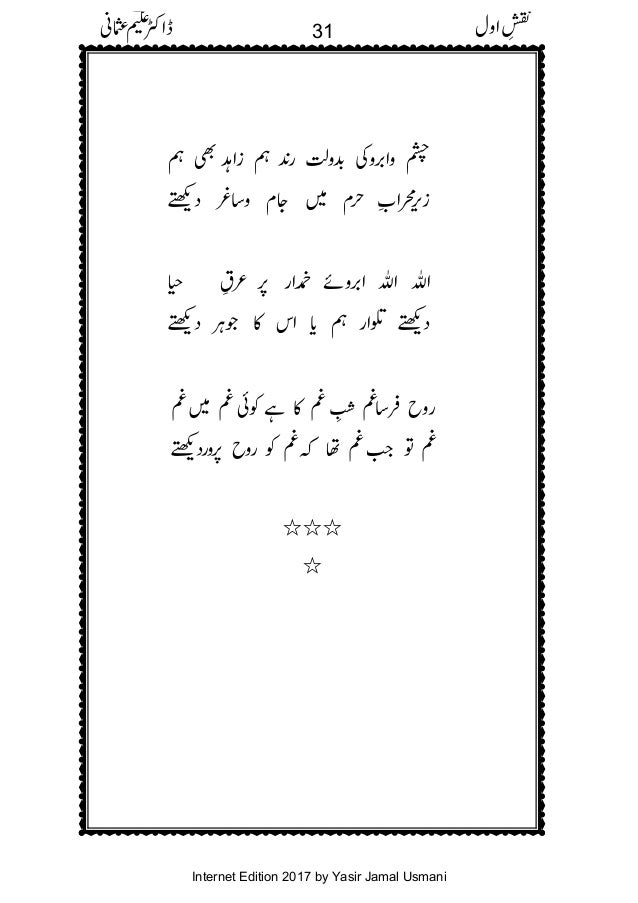 نقشِ اول 31 ڈاکٹر علیم عثمانی
چشم وابرو کی بدولت رند ہم زاہد بھی ہم
زیرمحرابِ حرم میں جام وساغر دیکھتے
اللہ اللہ ابروئے خمدار پر عرقِ حیا
دیکھتے تلوار ہم یا اس کا جوہر دیکھتے
روح فرسا غم شبِ غم کا ہے کوئی غم میں غم
غم تو جب غم تھا کہ غم کو روح پرور دیکھتے
☆☆☆
☆
Internet Edition 2017 by Yasir Jamal Usmani